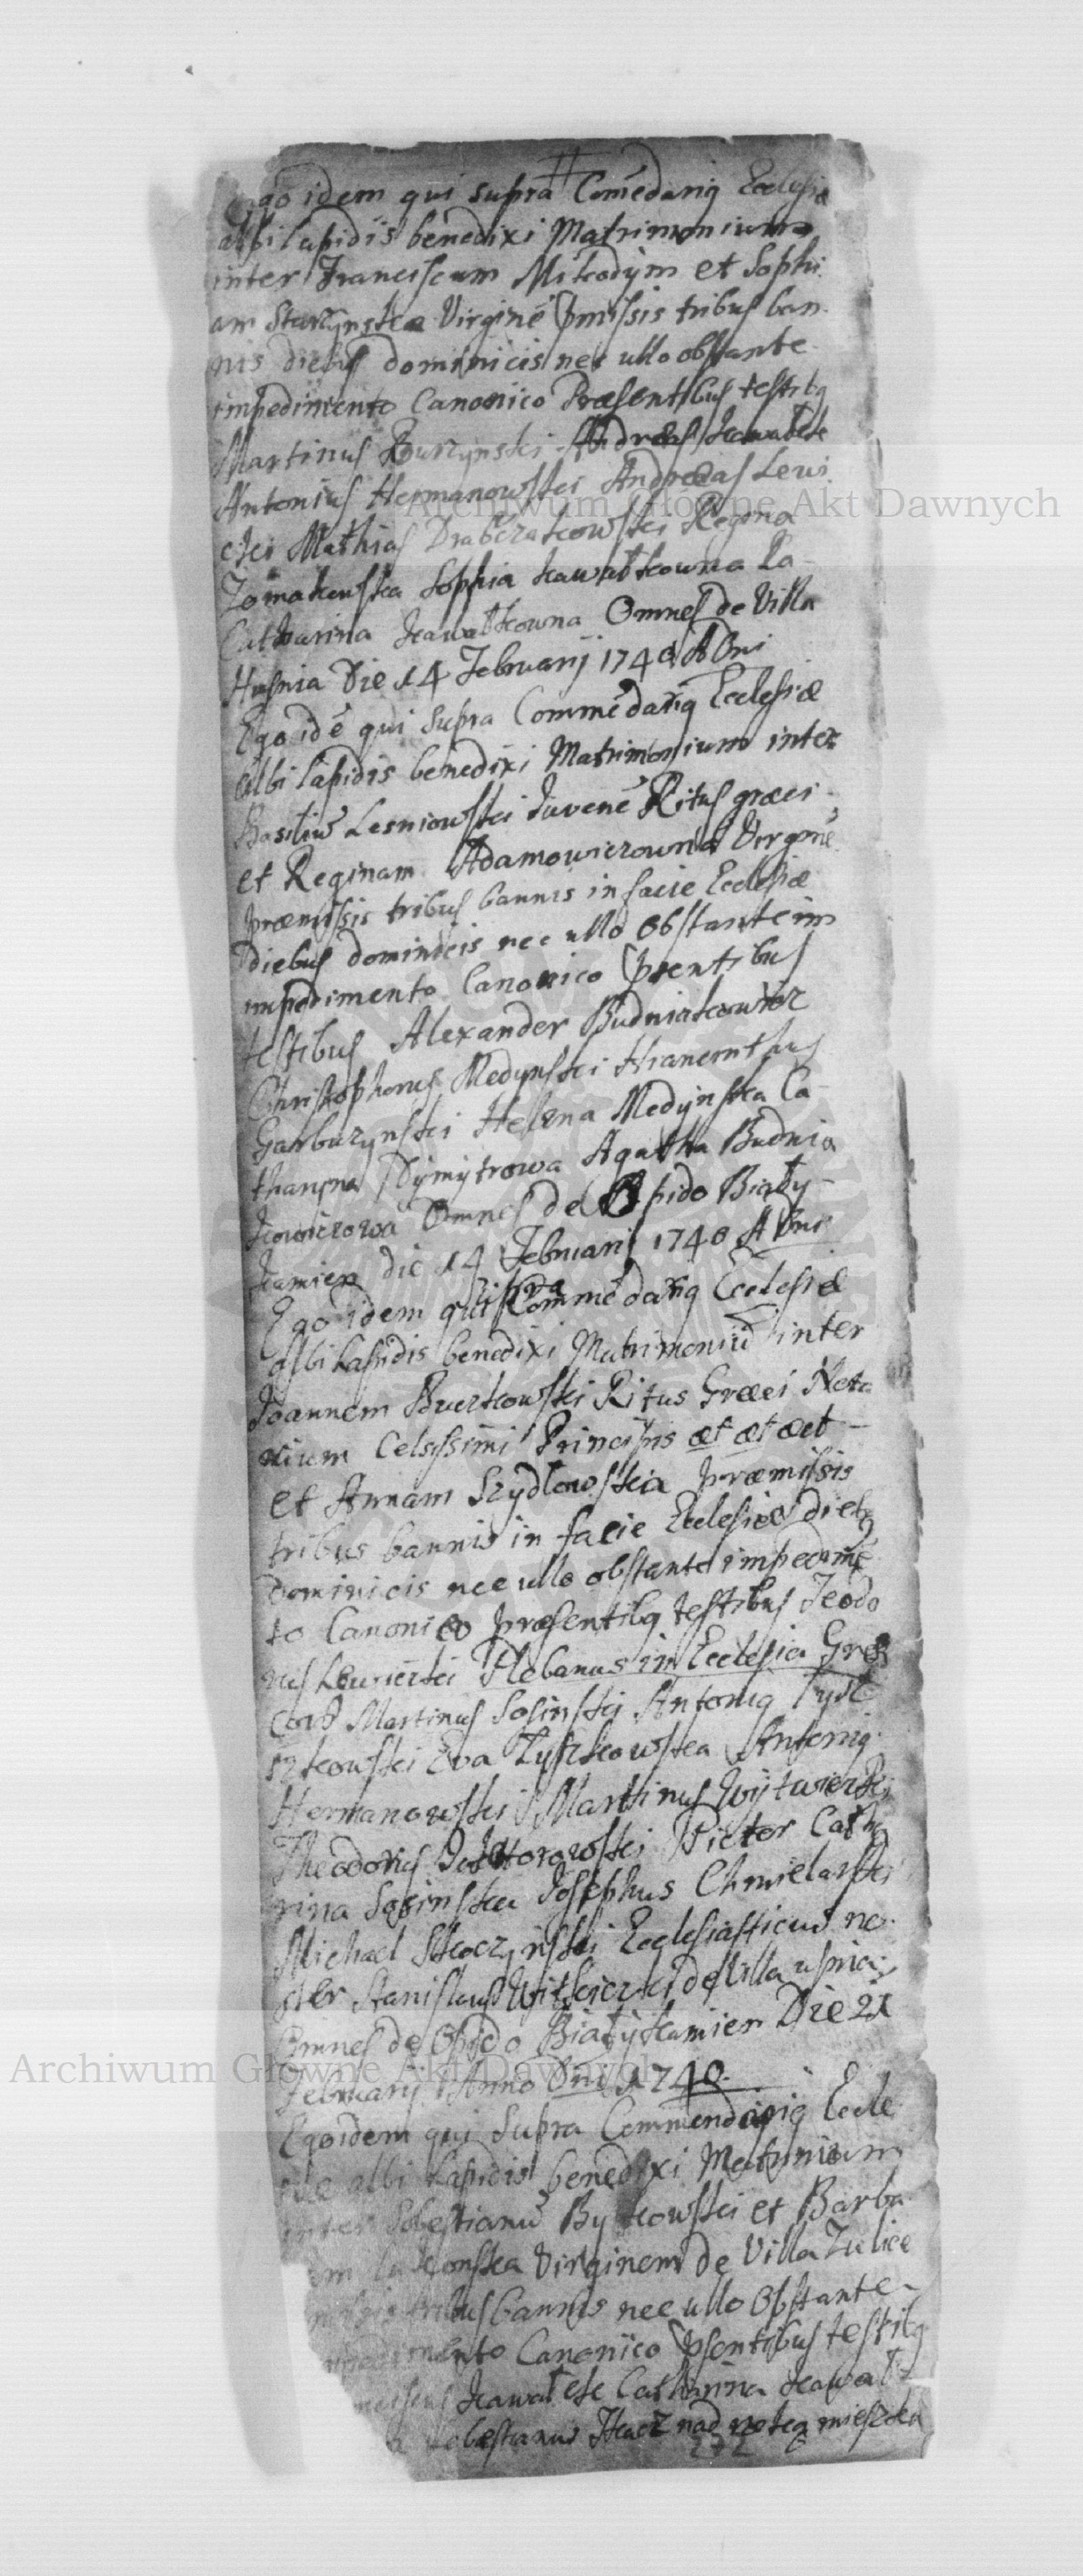 Ego idem qui supra Comēdarią Ecclesiæ
albi lapidis benedixi Matrimonium
inter Franciscum Mikodym et Sophi
am Virginē pmissis tribus ban
nis diebus dominicis nec ullo obstante
impedimento Canonico Præsentibus testibą
Martinus Burzynski Andreas
Antonius Hermanowski Andreas Lewi
cki Mathias Regina
Sophia Kawałkowna Ca
Catharina Kawałkowna Omnes de Villa
Husnia Die 14 Februarij 1740 A Dni
Ego idē qui supra Commēdarią Ecclesiæ
albi lapidis benedixi Matrimonium inter
Basiliū Lesniowski Juvenē Ritus græci
et Reginam Adamowiczowna Virginē
præmissis tribus bannis in facie Ecclesiæ
diebus dominicis nec ullo obstante im
impedimento Canonico psentibus
testibus Alexander Budniakowicz
Christophorus Medynski
Garburzynski Helena Medynska Ca
tharina Dymytrowa Agatha Budnia
kowiczowa Omnes de Opido Biały
kamien die 14 Februarij 1740 A Dni
Ego idem qui supra Commēdarią Ecclesiæ
albi lapidis benedixi Matrimoniū inter
Joannem Ritus Græci Nota
rium Celsissimi Principis æt æt æt
et Annam Szydłowska præmissis
tribus bannis in facie Ecclesiæ dieb9
dominicis nec ullo obstante impedimē
to Canonico præsentibą testibus Teodo
rus Lewicki Plebanus in Ecclesia Græ
Martinus Sosinski Antonią Tys
szkowski Eva Tyszkowska Antonią
Hermanowski Martinus Wytwicki
Theodorus Pictor Catha
rina Sosinska Josephus Chmielarski
Michael Skoczynski Ecclesiasticus no
ster Stanislaus de Villa
Omnes de Opido Białykamien Die 21
Februarij Anno Dni 1740
Ego idem qui supra Commendarią Eccle
siæ albi lapidis benedixi Matrimonium
inter Sebestianū Bykowski et Barba
Virginem de Villa Zulice
tribus bannis nec ullo obstante
impedimento Canonico psentibus testibą
Kawałek Catharina Kawał
Sebestianus Tkacz nad rzeką mieszka
272